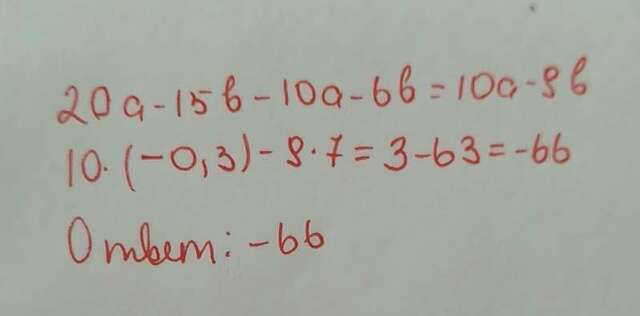 20a-15b-10a-6b=10a-9b
10·(-0,3)-9·7=3-63=-66
Ответ:-66